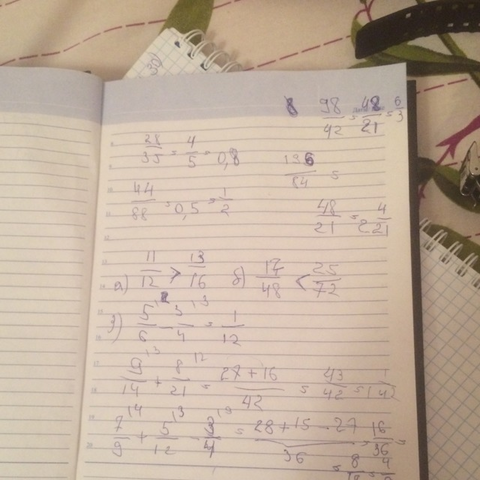 98/42 = 48/21 = 6/3
28/35 = 4/5 = 0,8
196/84 =
44/88 = 0,5 = 1/2
48/21 = 2 4/21
а) 11/12 > 13/16 б) 17/48 < 25/72
3) 5/6 - 3/4 = 1/12
9/14 + 8/21 = 27+16/42 = 43/42 = 1 1/42
7/9 + 5/12 - 3/4 = 28+15-27/36 = 16/36 =
= 8/18 = 4/9